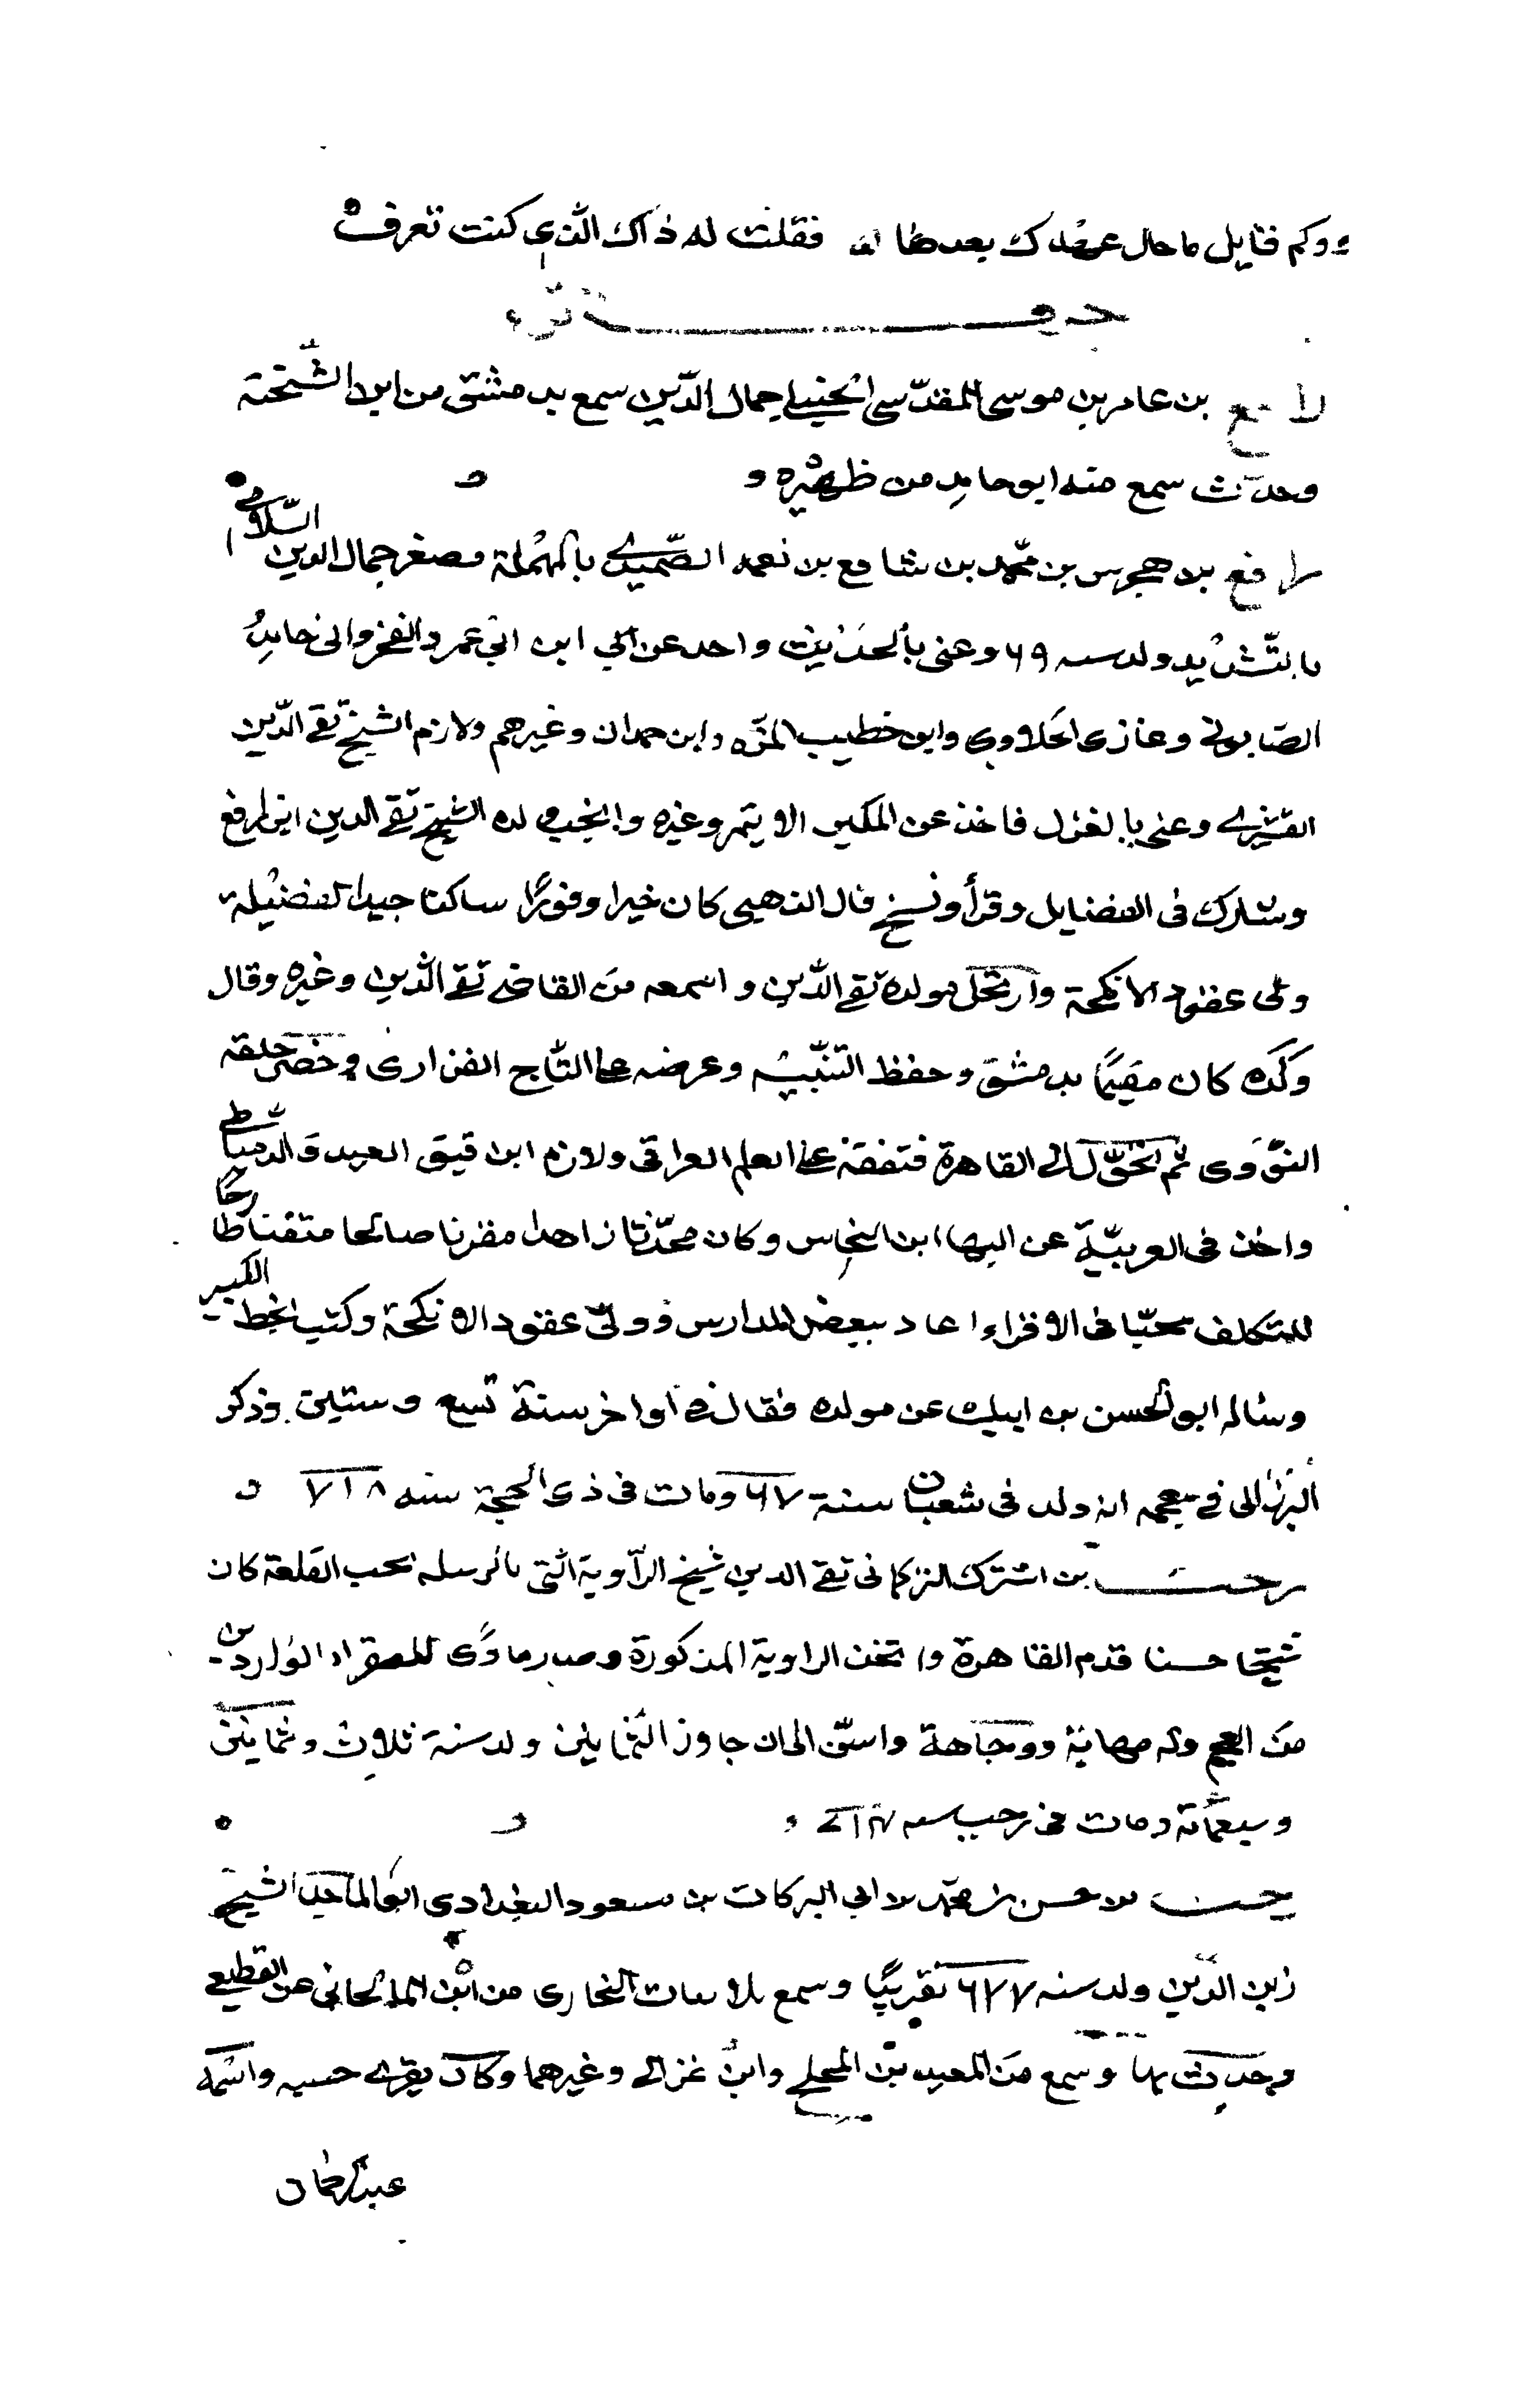 وكم قايل ما حال عهدك بعدها فقلت له ذاك الذي كنت تعرف
حرف
رافع بن عامر بن موسى المقدسي الحنبلي جمال الدين سمع بدمشق من ابن الشحنة
وحدث سمع منه ابو حامد من ظهيره
رافع بن هجرس بن محمد بن شافع بن نعمه الصميدي بالمهملة مصغر جمال الدين السلامي
بالتشديد ولد سنه ٦٩ وعنى بالحديث واخد عن ابن ابي عمر والفخر وابى حامد
الصابوني وغازى الحلاوى وابن خطيب المزه وابن حمدان وغيرهم ولازم الشيخ تقي الدين
القشيري وعنى فاخذ عن المكين الا وغيره وا له الشيخ تقي الدين ابن رافع
وشارك فى الفضايل وقرأ ونسخ قال الذهبي كان خيرا وقورا ساكنا جيد الفضيلة
ولى عقود الانكحة وارتحل بولده تقي الدين واسمعه من القاضي تقي الدين وغيره وقال
ولده كان مقيما بدمشق وحفظ التنبيه وعرضه على التاج الفزارى وحضر حلقه
النووى ثم تحول الى القاهرة فتفقه على العلم العراقى ولازم ابن دقيق العيد والدمياطي
واخذ فى العربية عن البها ابن النحاس وكان محدثا زاهدا مقرنا صالحا متفننا طارحا
للتكلف محبا فى الاقراء اعاد ببعض المدارس وولى عقود الانكحة وكتب بخطه الكثير
وساله ابو الحسن بن ايبك عن مولده فقال فى اواخر سنة تسع وستين وذكر
البرزالى في معجمه انه ولد فى شعبان سنة ٦٧ ومات فى ذى الحجة سنه ٧١٨
رجب بن اشترك التركمانى تقي الدين شيخ الزاوية التى بالرميله تحت القلعة كان
شيخا حسنا قدم القاهرة واتخذ الزاوية المذكورة وصارماوى للفقراء الواردين
من العجم وله مهابة ووجاهة واسن الى ان جاوز الثمانين ولد سنة ثلاث وثمانين
وسبعمائة ومات فى رجب سنه ٧١٤
رجب بن حسن بن محمد بن ابي البركات بن مسعود البغدادى الشيخ
زين الدين ولد سنه ٦٧٧ تقريبا وسمع ثلاثيات البخارى من ابن المالحانى عن القطيعي
وحدث بها وسمع من المعيد بن المحلي وابن غزال وغيرهما وكان يقرئ حسبه واسمه
عبد الرحمان